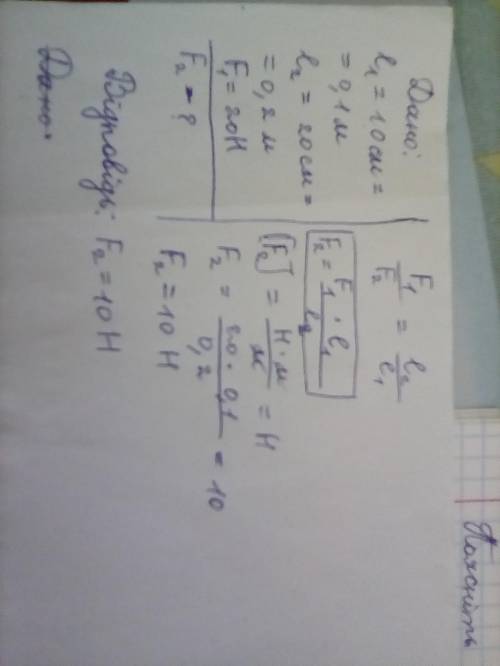 Дано:
l₁ = 10 см =
= 0,1 м
l₂ = 20 см =
= 0,2 м
F₁ = 20 Н
F₂ - ?
F₁/F₂ = l₂/l₁
F₂ = F₁ · l₁ / l₂
[F₂] = Н·м/м = Н
F₂ = 20 · 0,1 / 0,2 = 10
F₂ = 10 Н
Відповідь: F₂ = 10 Н
Дано:
Поясніть